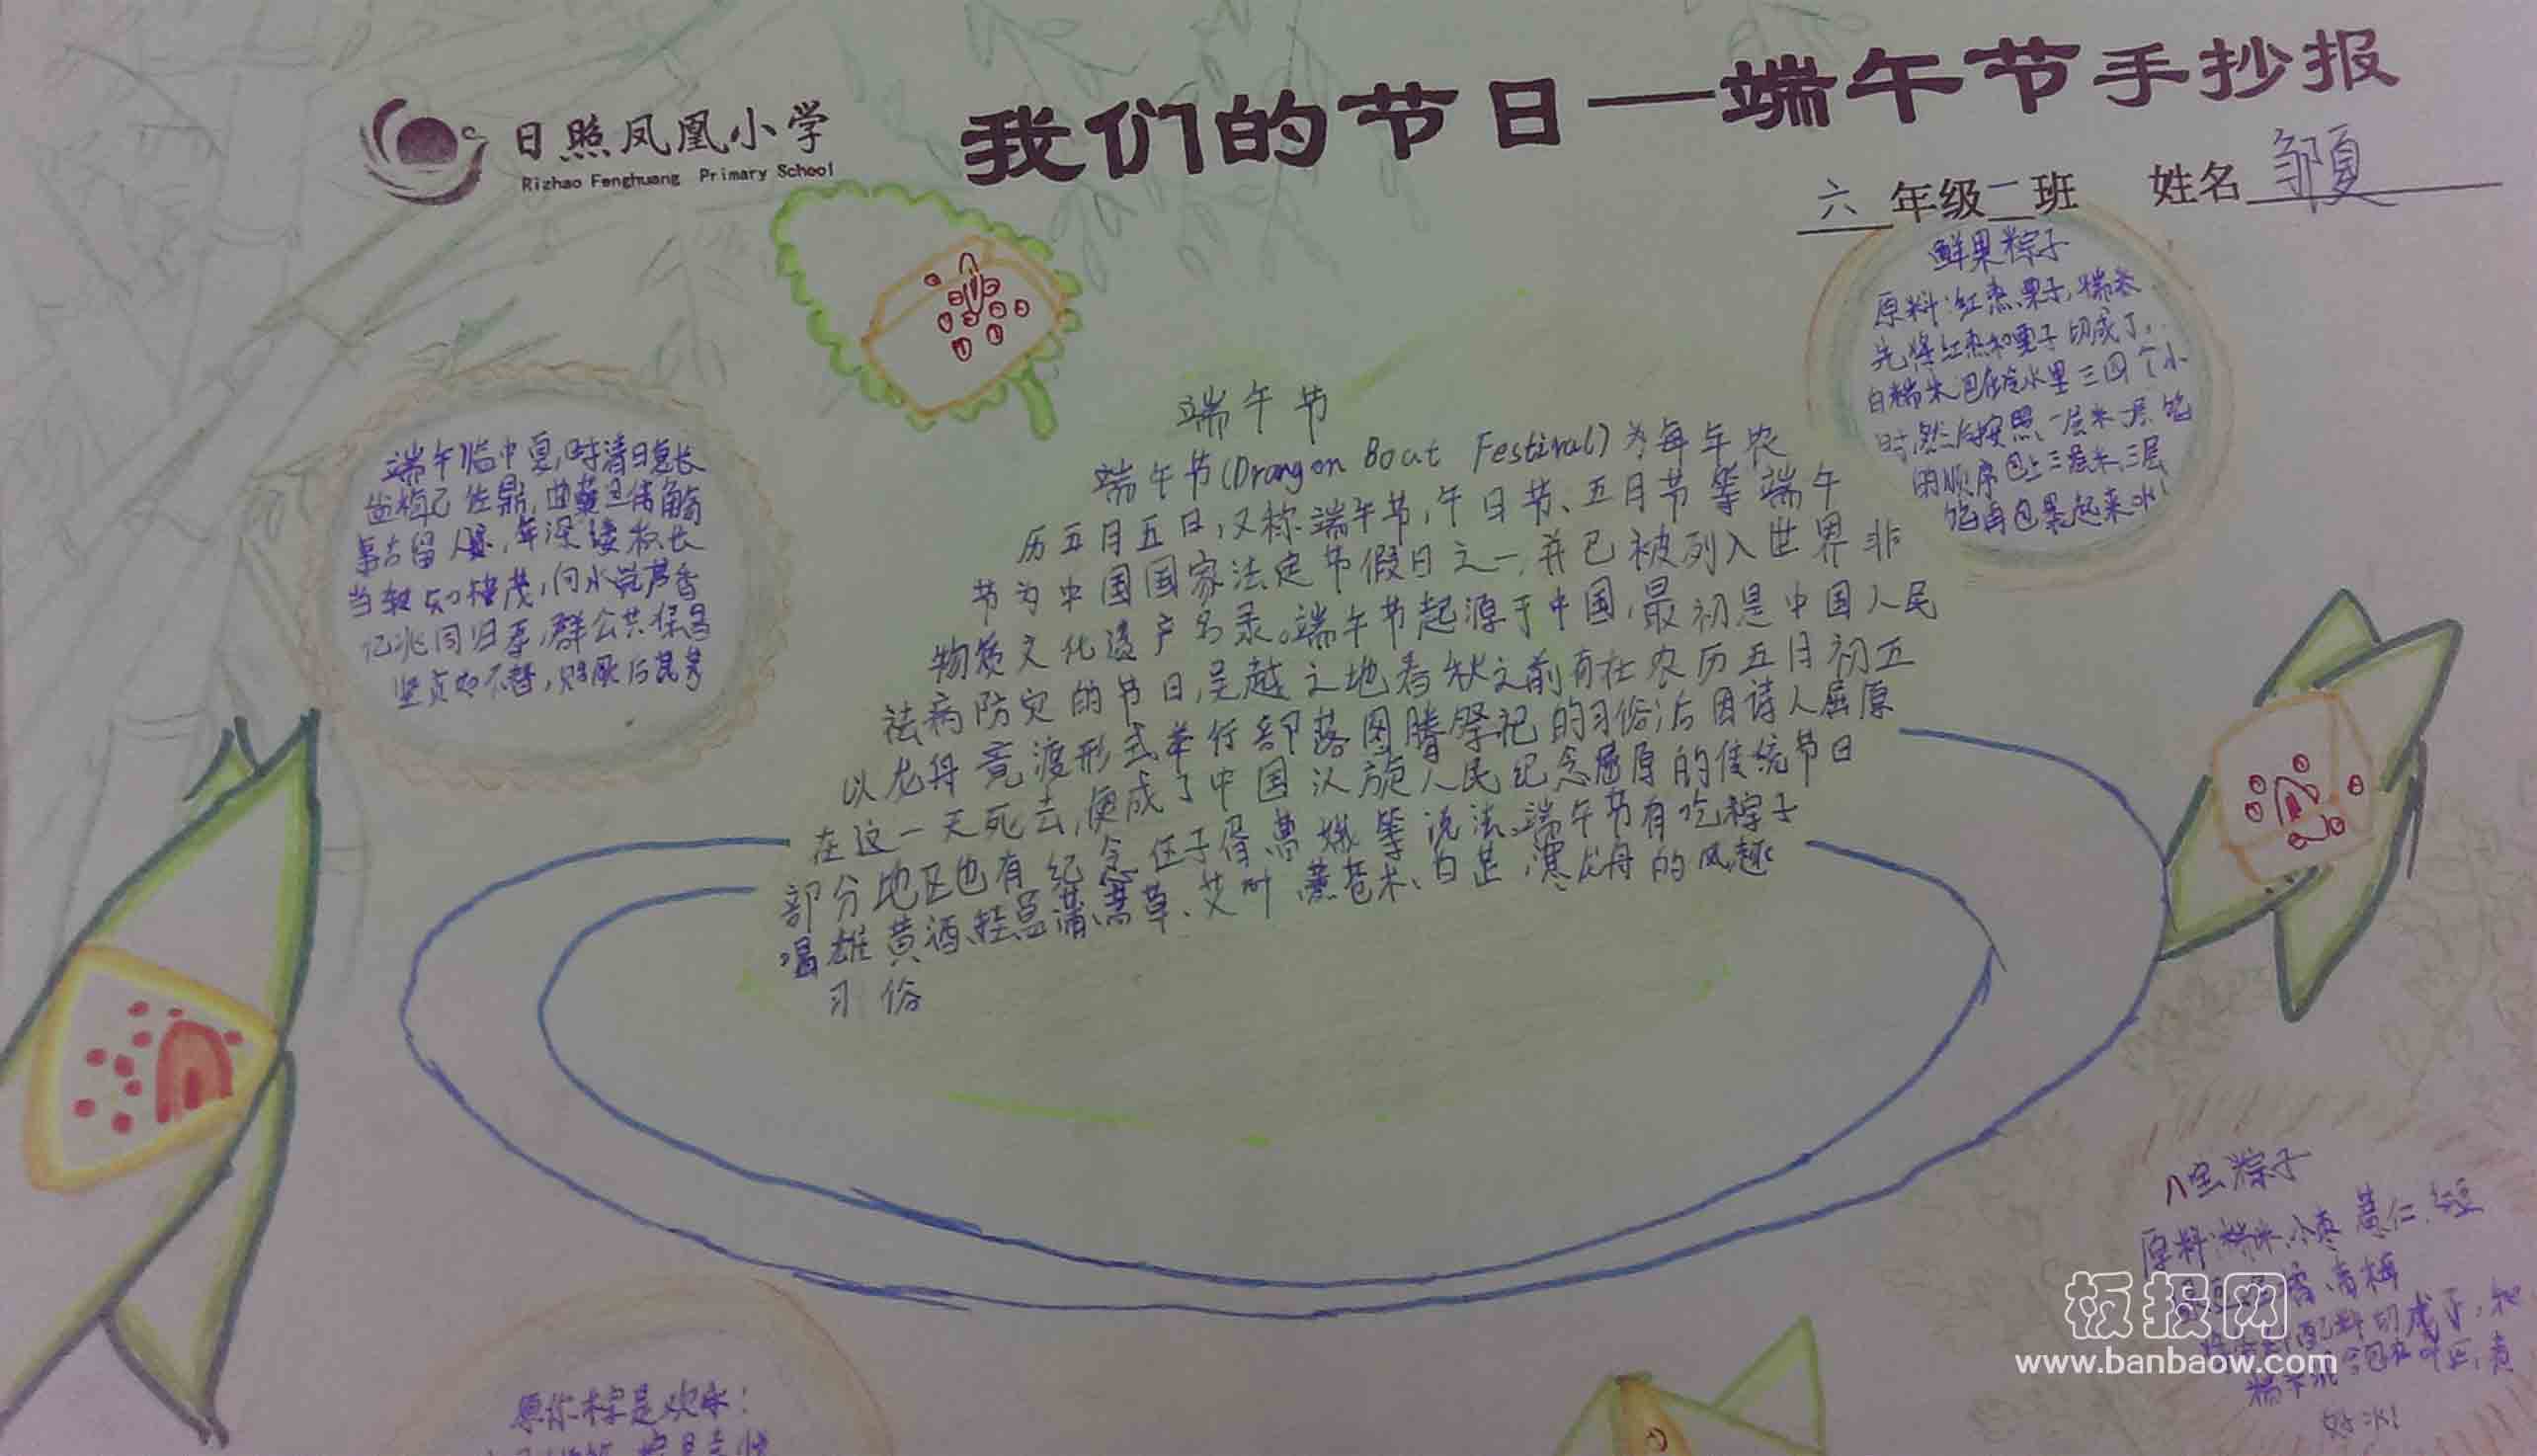 日照凤凰小学
Rizhao Fenghuang Primary School
我们的节日—端午节手抄报
六年级二班 姓名 邹夏
鲜果粽子
原料:红枣、栗子,糯米.
先将红枣和栗子切成丁,
白糯米泡在冷水里三四个小
时,然后按照一层米一层馅
的顺序包上三层米,三层
馅再包裹起来水!
端午临中夏,时清日复长
盐梅已佐鼎,曲蘖且传觞
事古留人迹,年深缕积长
当轩知槿茂,向水觉芦香
亿兆同归寿,群公共保昌
坚贞如不替,贻厥后昆芳
端午节
端午节(Drangon Boat Festival)为每年农
历五月五日,又称端午节,午日节、五月节等端午
节为中国国家法定节假日之一,并已被列入世界非
物质文化遗产名录。端午节起源于中国,最初是中国人民
祛病防灾的节日,吴越之地春秋之前有在农历五月初五
以龙舟竟渡形式举行部落图腾祭祀的习俗;后因诗人屈原
在这一天死去,便成了中国汉族人民纪念屈原的传统节日
部分地区也有纪念伍子胥、曹娥等说法。端午节有吃粽子
喝雄黄酒、挂菖蒲、蒿草、艾叶、薰苍术、白芷,赛龙舟的风趣
习俗
八宝粽子
原料:糯米、小枣、薏仁、红豆
青梅
配料切成丁,和
糯米
愿你粽是欢乐!
板报网
www.banbaow.com